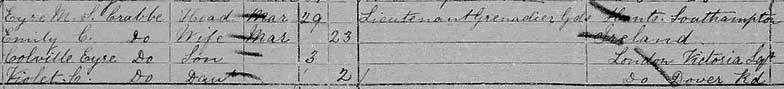 Eyre M. S. Crabbe Head Mar 29 Lieutenant Grenadier Gds Hants. Southampton
Emily C. Do Wife Mar 23 Ireland
Colville Eyre Do Son 3 London Victoria Sqr
Violet C. Do Daur 2 Do Dover Rd